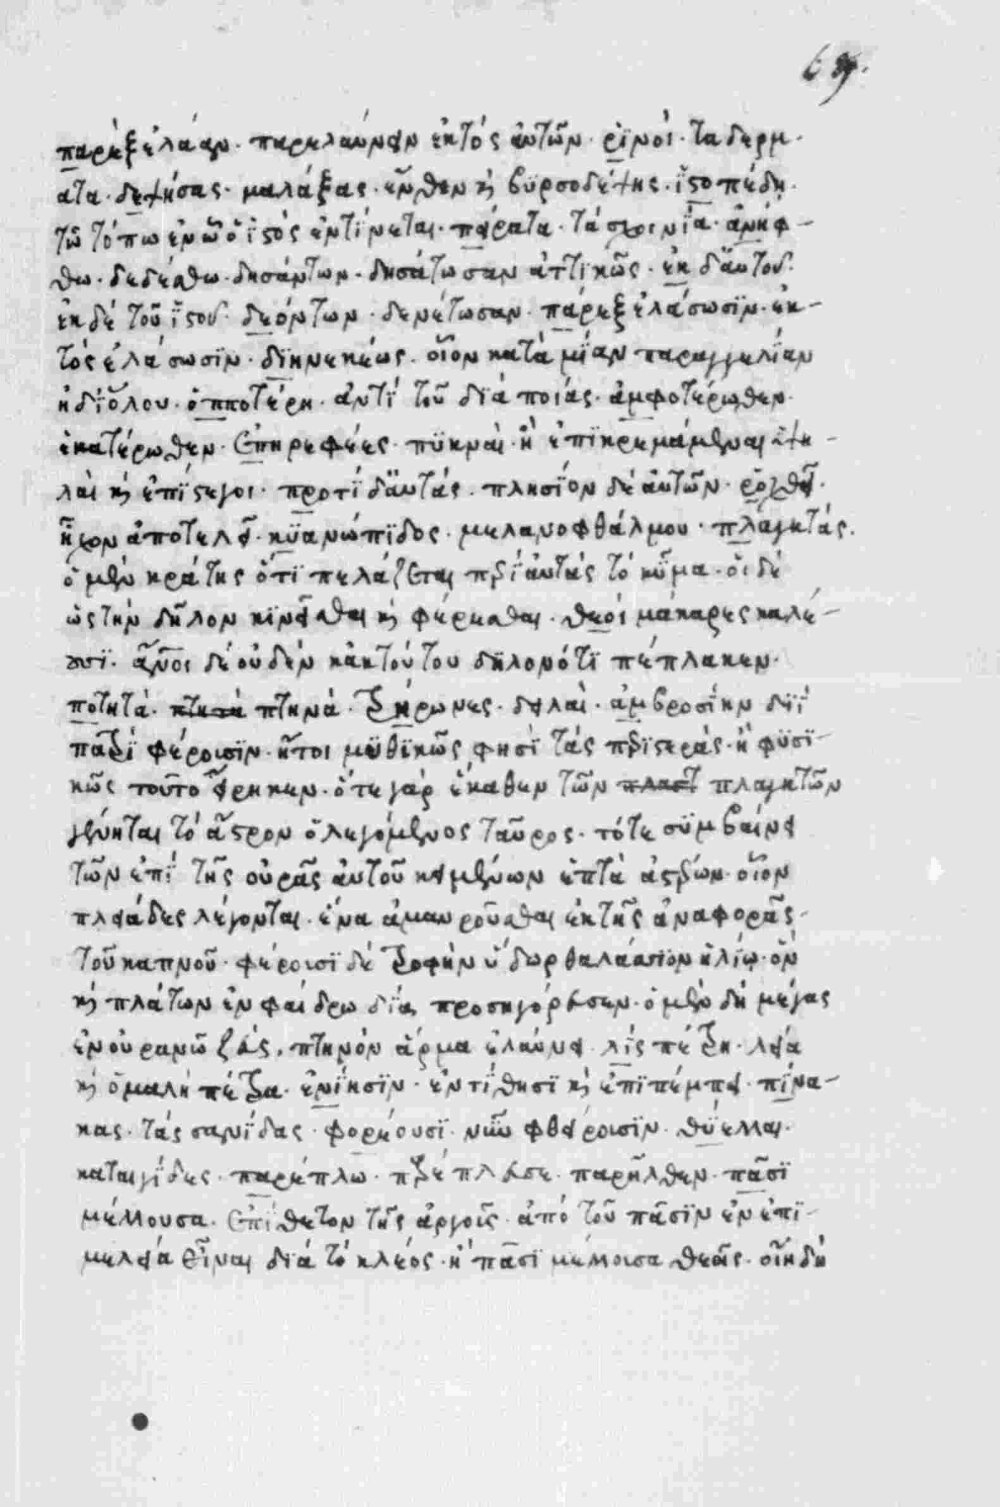 69.
παρὲξ ἐλάαν· παρελαύνειν ἐκτὸς αὐτῶν· ῥϊνοί· τα δερμ-
ατα· δεψήσας· μαλάξας· ἔνθεν κ βϋρσοδέψης· ἵστοπέδη·
τῶ τόπω ἐν ᾧ ὁ ἱστὸς ἐντίνεται· πείρατα· τὰ σχοινία· ἀνήφ-
θω· δεδέσθω· δησάντων· δησάτωσαν ἀττικῶς· ἐκ δ' ἄυτοῦ·
ἐκ δὲ τοῦ ἵστοῦ· δεόντων· δενέτωσαν· πάρεξ ἐλάσωσϊν· ἐκ-
τὸς ἐλάσωσϊν· δϊηνεκέως· οἷον κατὰ μίαν παραγγελίαν
ἢ δϊόλου· ὁπποτέρη· ἀντὶ τοῦ διὰ ποίας· ἀμφοτέρωθεν·
ἑκατέρωθεν· ἐπηρεφέες· πϋκναὶ· ἢ ἐπϊκρεμάμεναι ὑψη-
λαὶ κ ἐπίστεγοι· προτὶ δ' ἄυτὰς· πλησίον δὲ αὐτῶν· ῥοχθεῖ·
ἦχον ἀποτελεῖ· κϋανώπϊδος· μελανοφθάλμου· πλαγκτὰς·
ὁ μὲν κράτης ὅτϊ πελάζεται πρὸς αὐτὰς τὸ κῦμα· οἱ δὲ
ὡς τὴν δῆλον κϊνεῖσθαι κ φέρεσθαι· θεοὶ μάκαρες καλέ-
ουσϊ· ἄνοι δὲ οὐδὲν κἀκ τούτου δηλονότϊ πέπλακεν·
ποτητὰ· πτητὰ πτηνὰ· τρήρωνες· δειλαὶ· ἀμβροσίην διῒ
πατρὶ φέρουσϊν· ἤτοι μϋθϊκῶς φησὶ τὰς περϊστερὰς· ἢ φϋσϊ-
κῶς τοῦτο εἴρηκεν· ὅτε γὰρ ἕκαθεν τῶν πλαστ πλαγκτῶν
γένηται τὸ ἄστρον ὁ λεγόμενος ταῦρος· τότε σϋμβαίνει
τῶν ἐπὶ τῆς οὐρᾶς αὐτοῦ κειμένων ἑπτὰ ἀστέρων· οἷον
πλειάδες λέγονται· ἕνα ἀμαυροῦσθαι ἐκ τῆς ἀναφορᾶς
τοῦ καπνοῦ· φέρουσϊ δὲ τροφὴν ὕδωρ θαλάσσϊον ἡλίω· ὃν
κ πλάτων ἐν φαίδρω δία προσηγόρευσεν· ὁ μὲν δὴ μέγας
ἐν οὐρανῶ ζεύς· πτηνὸν ἅρμα ἐλαύνει· λὶς πέτρη· λεία
κ ὁμαλὴ πέτρα· ἐνίησϊν· ἐντίθησϊ κ ἐπϊπέμπει· πίνα-
κας· τὰς σανίδας· φορέουσϊ· νῦν φθείρουσϊν· θϋέλλαι·
καταιγίδες· παρέπλω· παρέπλευσε· παρῆλθεν· πᾶσϊ
μέλουσα· ἐπίθετον τῆς ἀργοῦς· ἀπὸ τοῦ πᾶσϊν ἐν ἐπϊ-
μελεία εἶναι διὰ τὸ κλέος· ἢ πᾶσϊ μέλουσα θεοῖς· οἵη δὴ